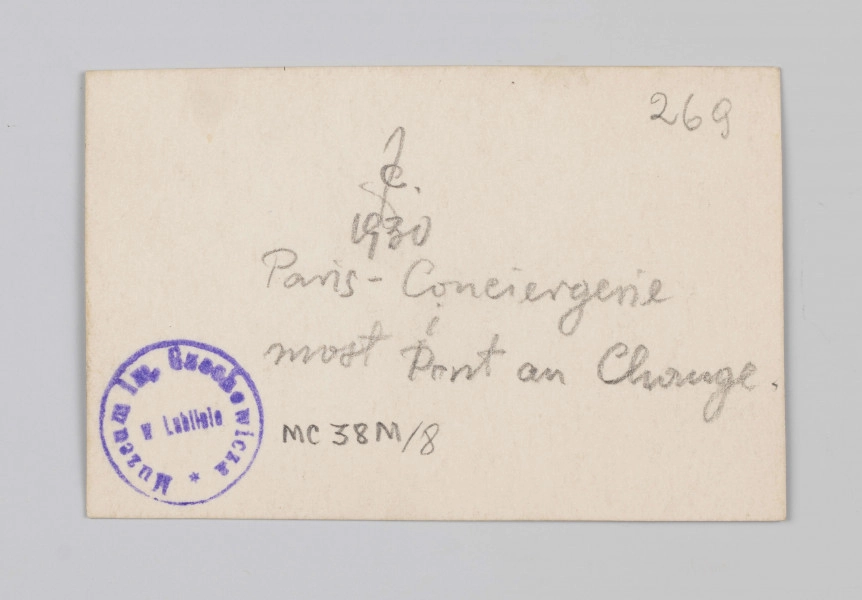 269
Jc.
1930
Paris - Conciergerie
i
most Pont au Change.
MC 38 M/8
Muzeum Im. Czechowicza *
w Lublinie